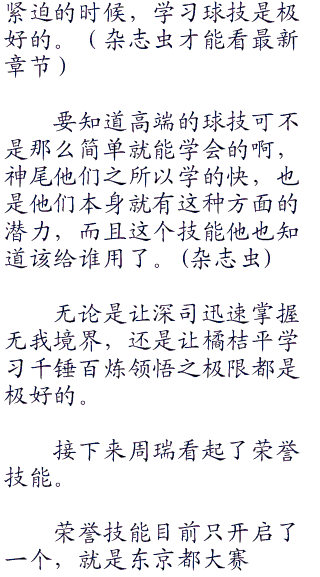 紧迫的时候，学习球技是极
好的。（杂志虫才能看最新
章节）
要知道高端的球技可不
是那么简单就能学会的啊，
神尾他们之所以学的快，也
是他们本身就有这种方面的
潜力，而且这个技能他也知
道该给谁用了。(杂志虫)
无论是让深司迅速掌握
无我境界，还是让橘桔平学
习千锤百炼领悟之极限都是
极好的。
接下来周瑞看起了荣誉
技能。
荣誉技能目前只开启了
一个，就是东京都大赛